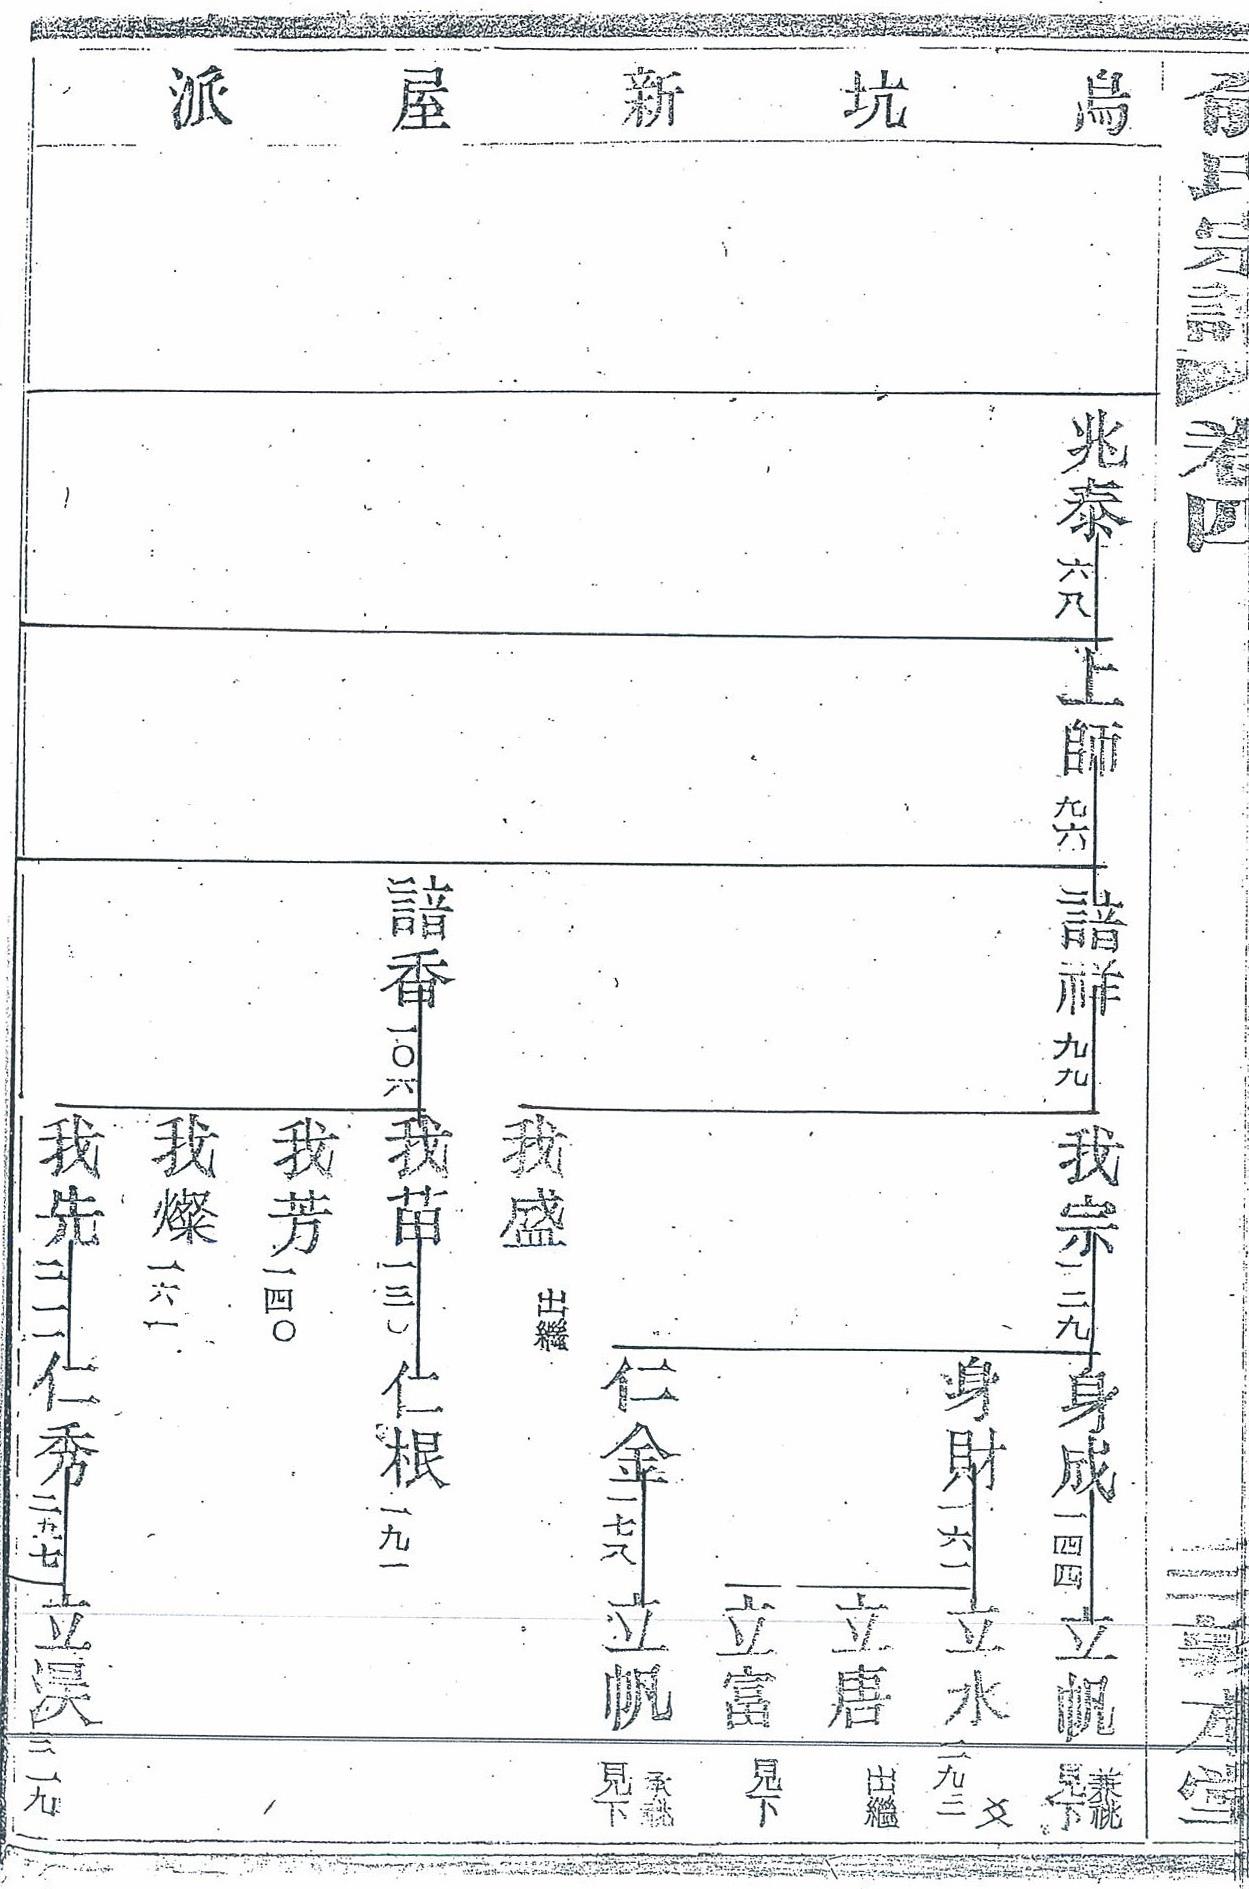 俞氏宗譜 卷四
烏坑新屋派
兆泰 六八
上師 九六
諳祥 九九
我宗 一二九
身成 一四四
立帆 兼祧 見下
身財 一六一
立水 一九二
立唐 出繼
立富 見下
仁金 一七八
立帆 承祧 見下
我盛 出繼
諳香 一〇六
我苗
仁根 一九一
我芳 一四〇
我燦 一六一
我先
仁秀 二五七
立淏 三一九